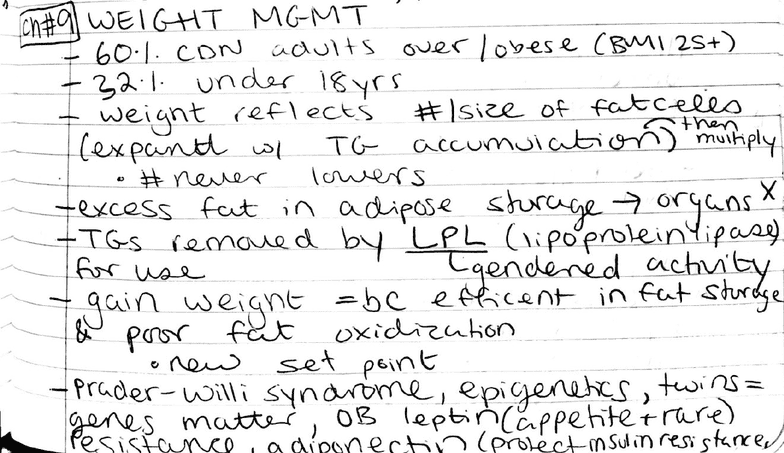 Ch#9 WEIGHT MGMT
- 60%. CDN adults over/obese (BMI 25+)
- 32%. under 18yrs
- weight reflects #/size of fatcells
(expand w/ TG accumulation) then multiply
• # never lowers
- excess fat in adipose sturage → organs X
- TGs removed by LPL (lipoprotein lipase)
for use gendered activity
- gain weight = bc efficent in fat sturage
& poor fat oxidization
• new set point
- Prader-Willi syndrome, epigenetics, twins =
genes matter, OB leptin (appetite + rare)
resistance, adiponectin (protect insulin resistance,